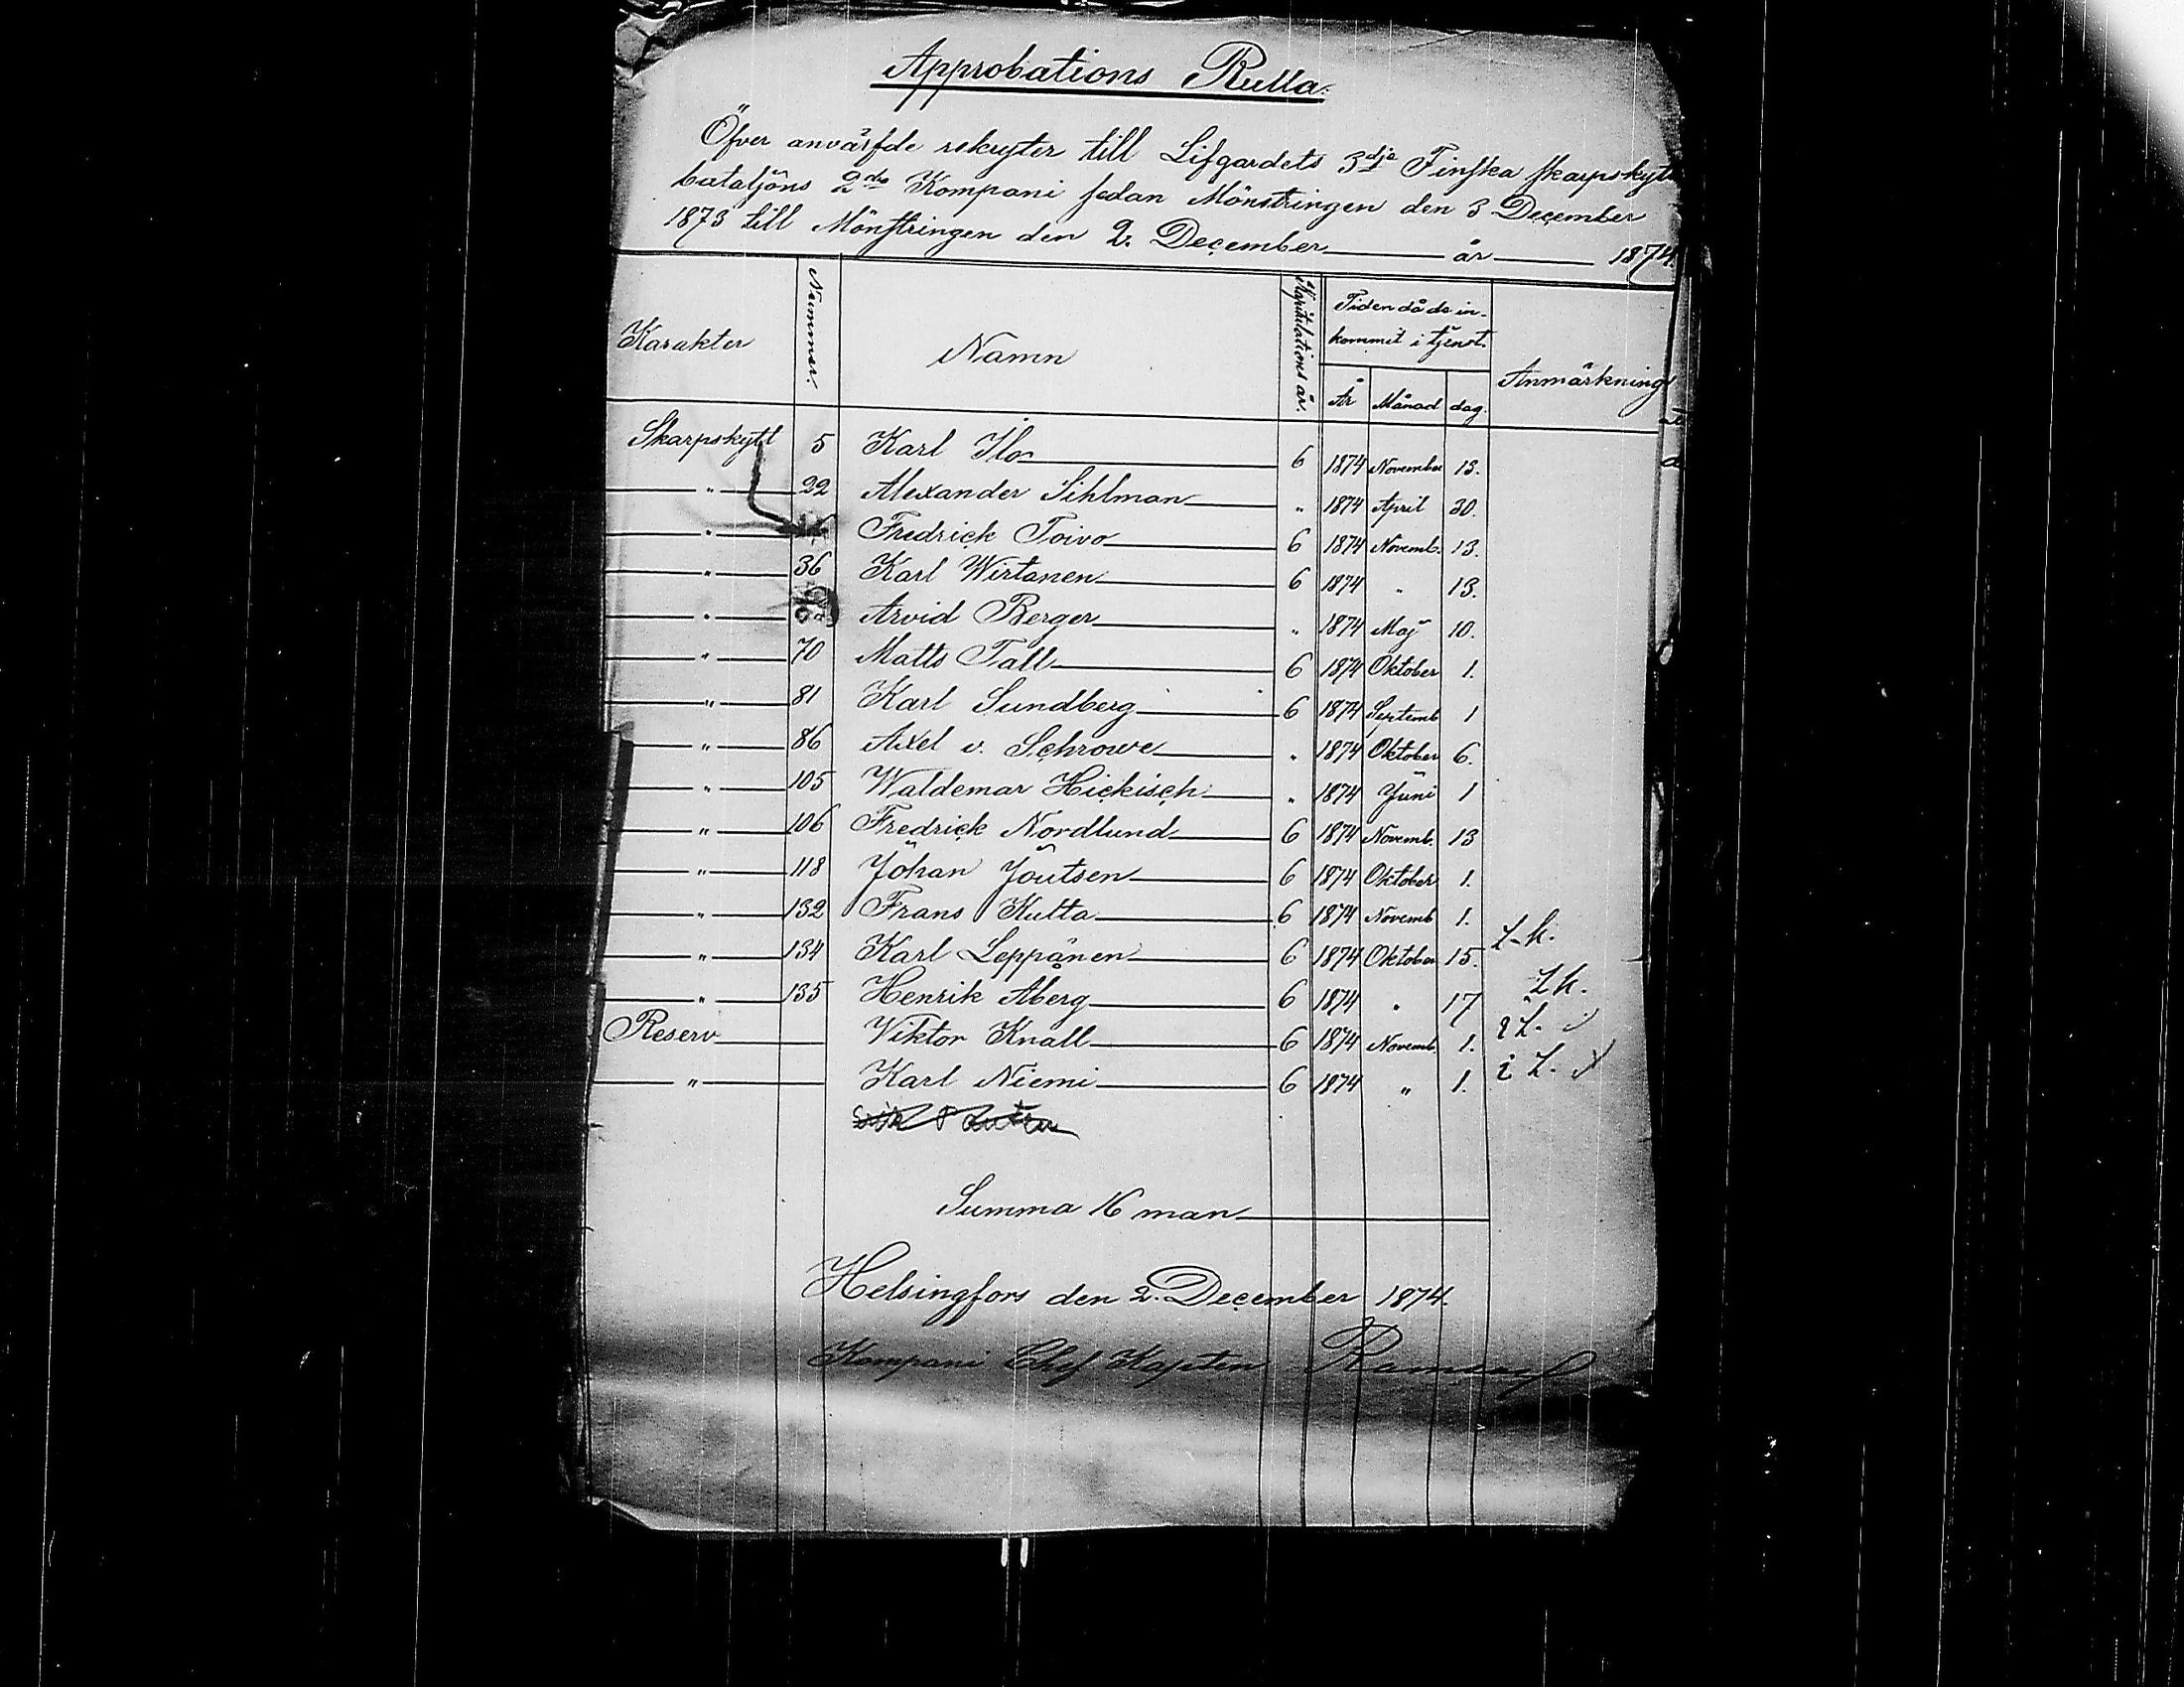 Approbations Rulla.
Öfver anvärfde rekryter till Lifgardets 3dje Finska skarpskytte
bataljons 2dra Kompani sedan Mönstringen den 3 December
1873 till Mönstringen den 2. December år 1874.
Karakter Nummer. Namn Kapitulations år. Tiden då de in-kommit i tjenst. År Månad dag. Anmärkning
Skarpskytt 5 Karl Ilo 6 1874 November 13.
" 22 Alexander Sihlman " 1874 April 30.
" Fredrick Toivo 6 1874 Novemb. 13.
" 36 Karl Wirtanen 6 1874 " 13.
" Arvid Berger " 1874 Maj 10.
" 70 Matts Tall 6 1874 Oktober 1.
" 81 Karl Sundberg 6 1874 Septemb 1
" 86 Axel v. Schrowe " 1874 Oktober 6.
" 105 Waldemar Hickisch " 1874 Juni 1
" 106 Fredrick Nordlund 6 1874 Novemb. 13
" 118 Johan Joutsen 6 1874 Oktober 1.
" 132 Frans Kulta 6 1874 Novemb 1.
" 134 Karl Leppänen 6 1874 Oktober 15.
" 135 Henrik Åberg 6 1874 " 17
Reserv Viktor Knall 6 1874 Novemb. 1.
" Karl Niemi 6 1874 " 1.
Summa 16 man
Helsingfors den 2. December 1874.
Kompani Chef Kapten Ramsay